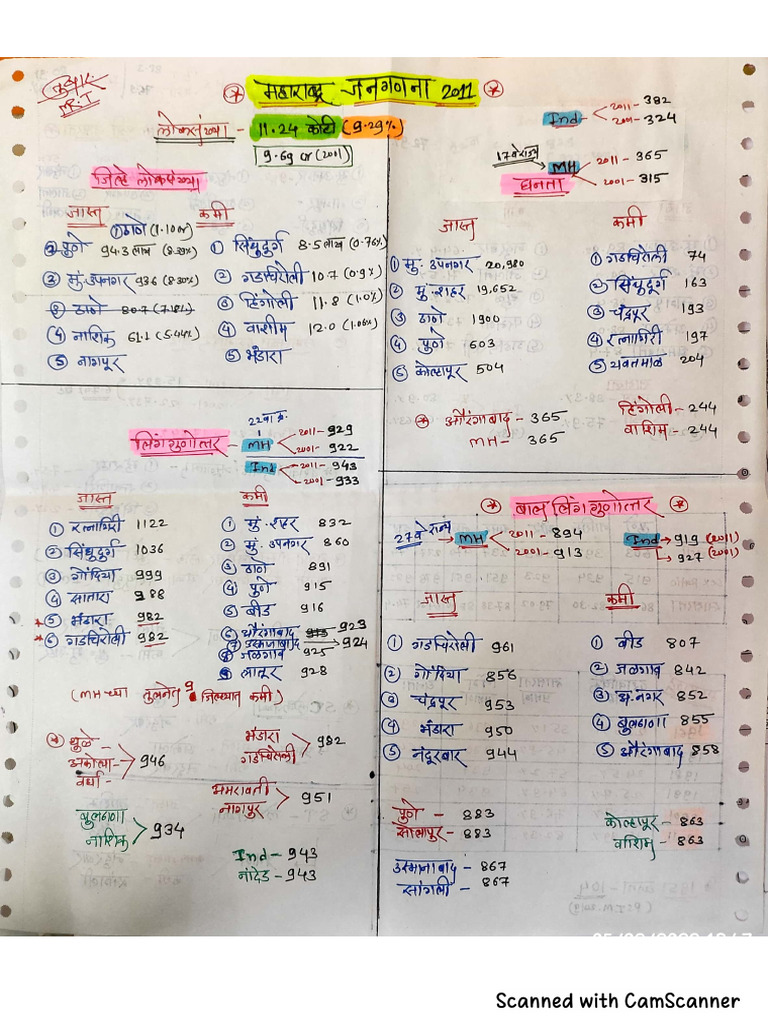 * महाराष्ट्र जनगणना 2011 *
लोकसंख्या - 11.24 कोटी (9.29%)
9.69 cr (2011)
जिल्हे लोकसंख्या
जास्त कमी
① ठाणे (1.10 cr)
② पुणे 94.3 लाख (8.39%)
③ मुं. उपनगर 93.6 (8.30%)
③ ठाणे 80.7 (7.18%)
④ नाशिक 61.1 (5.44%)
⑤ नागपूर
① सिंधुदुर्ग 8.5 लाख (0.76%)
② गडचिरोली 10.7 (0.9%)
③ हिंगोली 11.8 (1.0%)
④ वाशीम 12.0 (1.06%)
⑤ भंडारा
Ind 2011 - 382
2001 - 324
17 वे राज्य MH 2011 - 365
2001 - 315
घनता
जास्त कमी
① मुं. उपनगर 20,980
② मुं. शहर 19,652
③ ठाणे 1900
④ पुणे 603
⑤ कोल्हापूर 504
① गडचिरोली 74
② सिंधुदूर्ग 163
③ चंद्रपूर 193
④ रत्नागिरी 197
⑤ यवतमाळ 204
* औरंगाबाद - 365
MH - 365
हिंगोली - 244
वाशिम - 244
22 वा क्र.
लिंग गुणोत्तर - MH 2011 - 929
2001 - 922
Ind 2011 - 943
2001 - 933
जास्त कमी
① रत्नागिरी 1122
② सिंधुदुर्ग 1036
③ गोंदिया 999
④ सातारा 988
* ⑤ भंडारा 982
* ⑥ गडचिरोली 982
① मुं. शहर 832
② मुं. उपनगर 860
③ ठाणे 891
④ पुणे 915
⑤ बीड 916
⑥ औरंगाबाद 923
⑦ उस्मानाबाद 924
⑧ जळगाव 925
⑨ लातूर 928
(MH च्या तुलनेत 9 जिल्ह्यात कमी)
* धुळे
अकोला
वर्धा
946
भंडारा
गडचिरोली
982
अमरावती
नागपूर
951
बुलढाणा
नाशिक
934
Ind - 943
नांदेड - 943
* बाल लिंग गुणोत्तर *
27 वे राज्य MH 2011 - 894
2001 - 913
Ind 919 (2011)
927 (2001)
जास्त कमी
① गडचिरोली 961
② गोंदिया 956
③ चंद्रपूर 953
④ भंडारा 950
⑤ नंदूरबार 944
① बीड 807
② जळगाव 842
③ अ. नगर 852
④ बुलढाणा 855
⑤ औरंगाबाद 858
पुणे - 883
सोलापूर - 883
कोल्हापूर - 863
वाशिम - 863
उस्मानाबाद - 867
सांगली - 867
Scanned with CamScanner